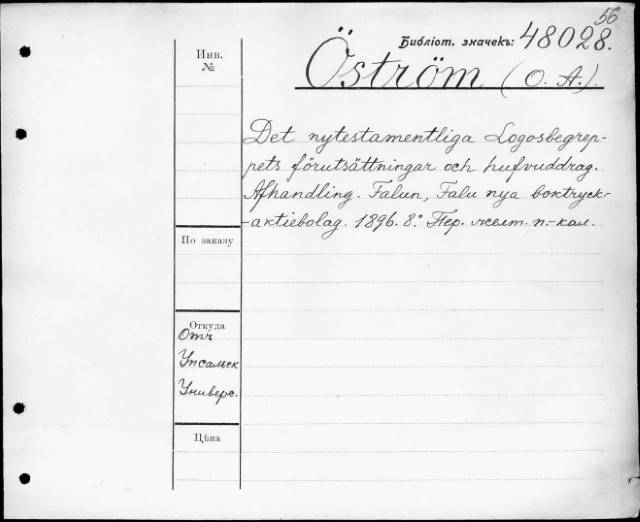 56
Библіот. значекъ: 48028.
Инв.
№
Öström (O. A.).
Det nytestamentliga Logosbegrep-
pets förutsättningar och hufvuddrag.
Afhandling. Falun, Falu nya boktryck-
-aktiebolag. 1896. 8.° Пер. желт. п.-кал.
По заказу
Откуда
Отъ
Упсальск
Универс.
Цѣна